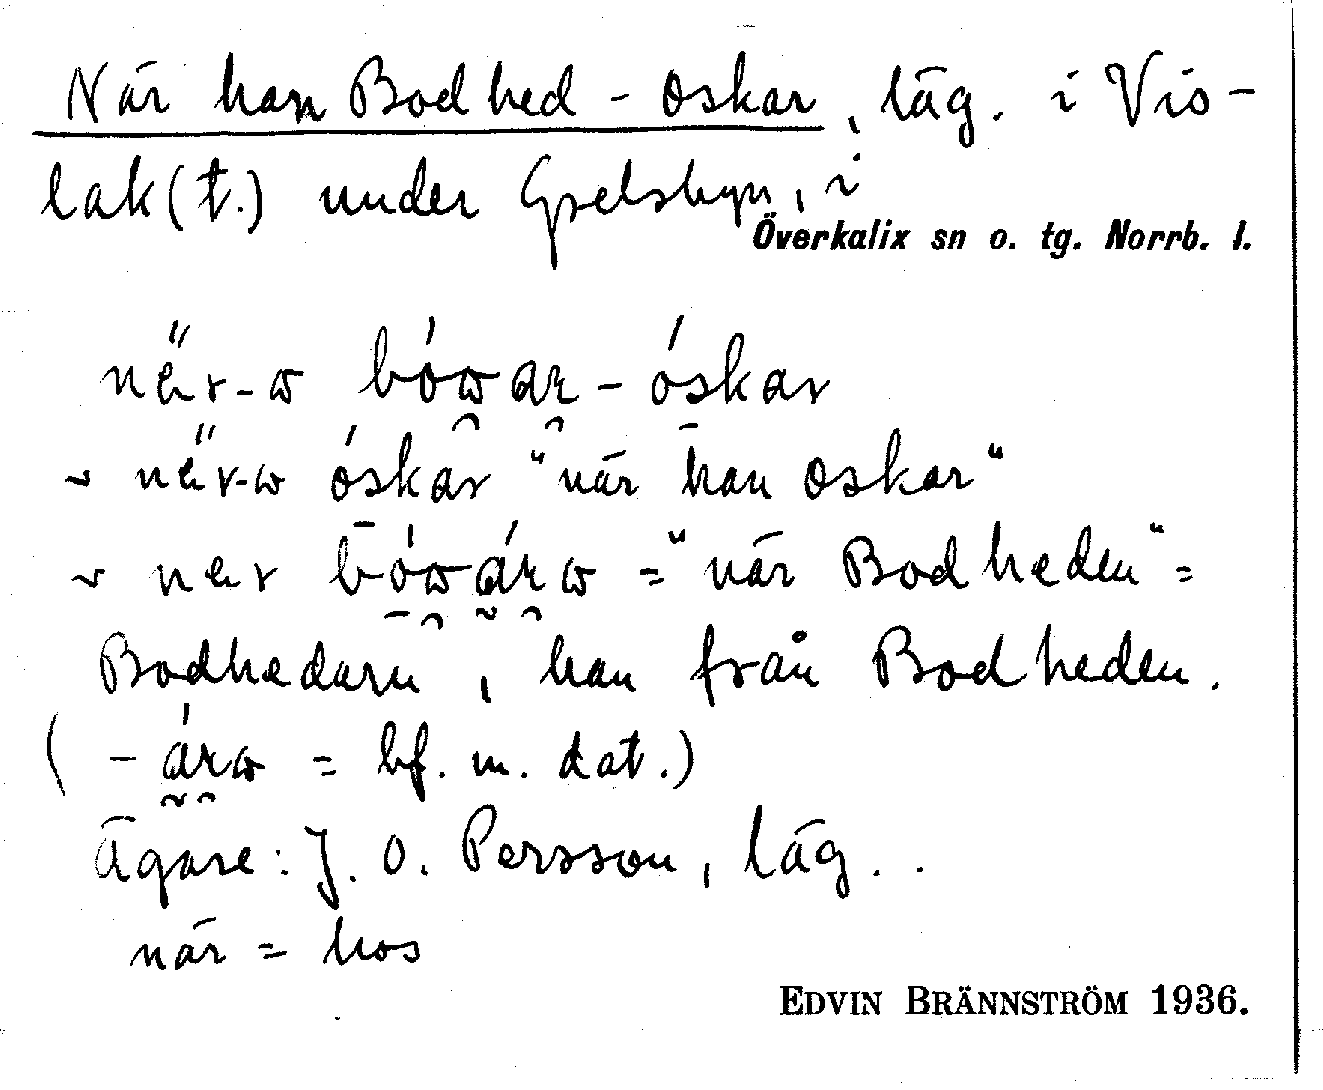 När han Bodhed-Oskar, läg. i Vis-
lak(t.) under Gyselsbyn, i
Överkalix sn o. tg. Norrb. l.
óskar
óskar "när han Oskar"
= "när Bodheden" =
Bodhedarn, han från Bodheden.
= bf. m. dat.)
Ägare: J. O. Persson, läg..
när = hos
EDVIN BRÄNNSTRÖM 1936.